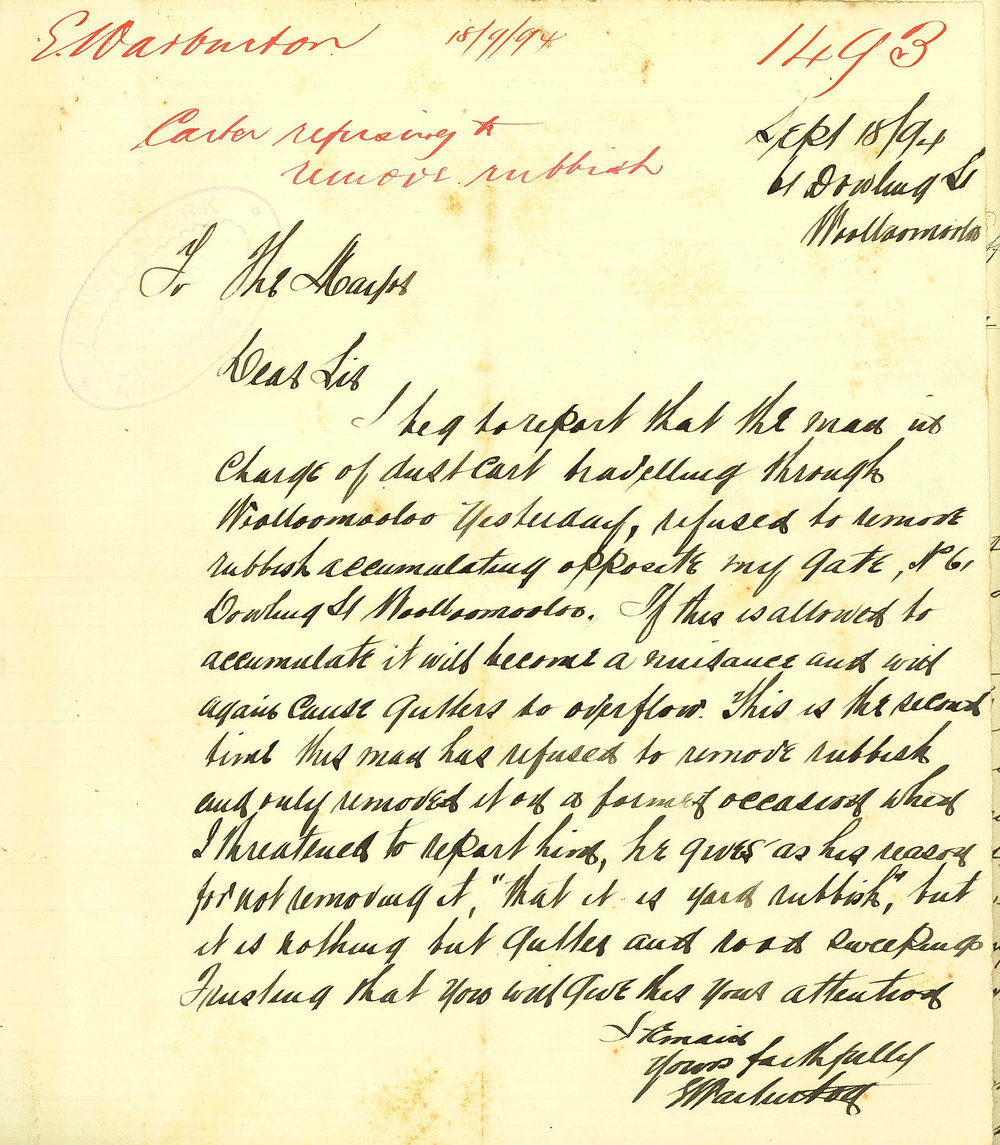 E. Warburton 18/9/94 1493
Carter refusing to
remove rubbish
Sept 18/94
61 Dowling St
Woolloomooloo
TOWN CLERK
To The Mayor
Dear Sir
I beg to report that the man in
charge of dust cart travelling through
Woolloomooloo Yesterday, refused to remove
rubbish accumulating opposite my gate, No 61
Dowling St Woolloomooloo. If this is allowed to
accumulate it will become a nuisance and will
again cause gutters to overflow. This is the second
time this man has refused to remove rubbish
and only removed it on a former occasion when
I threatened to report him, he gives as his reason
for not removing it, "that it is yard rubbish", but
it is nothing but gutter and road sweepings
Trusting that you will give this your attention
I remain
Yours faithfully
E Warburton